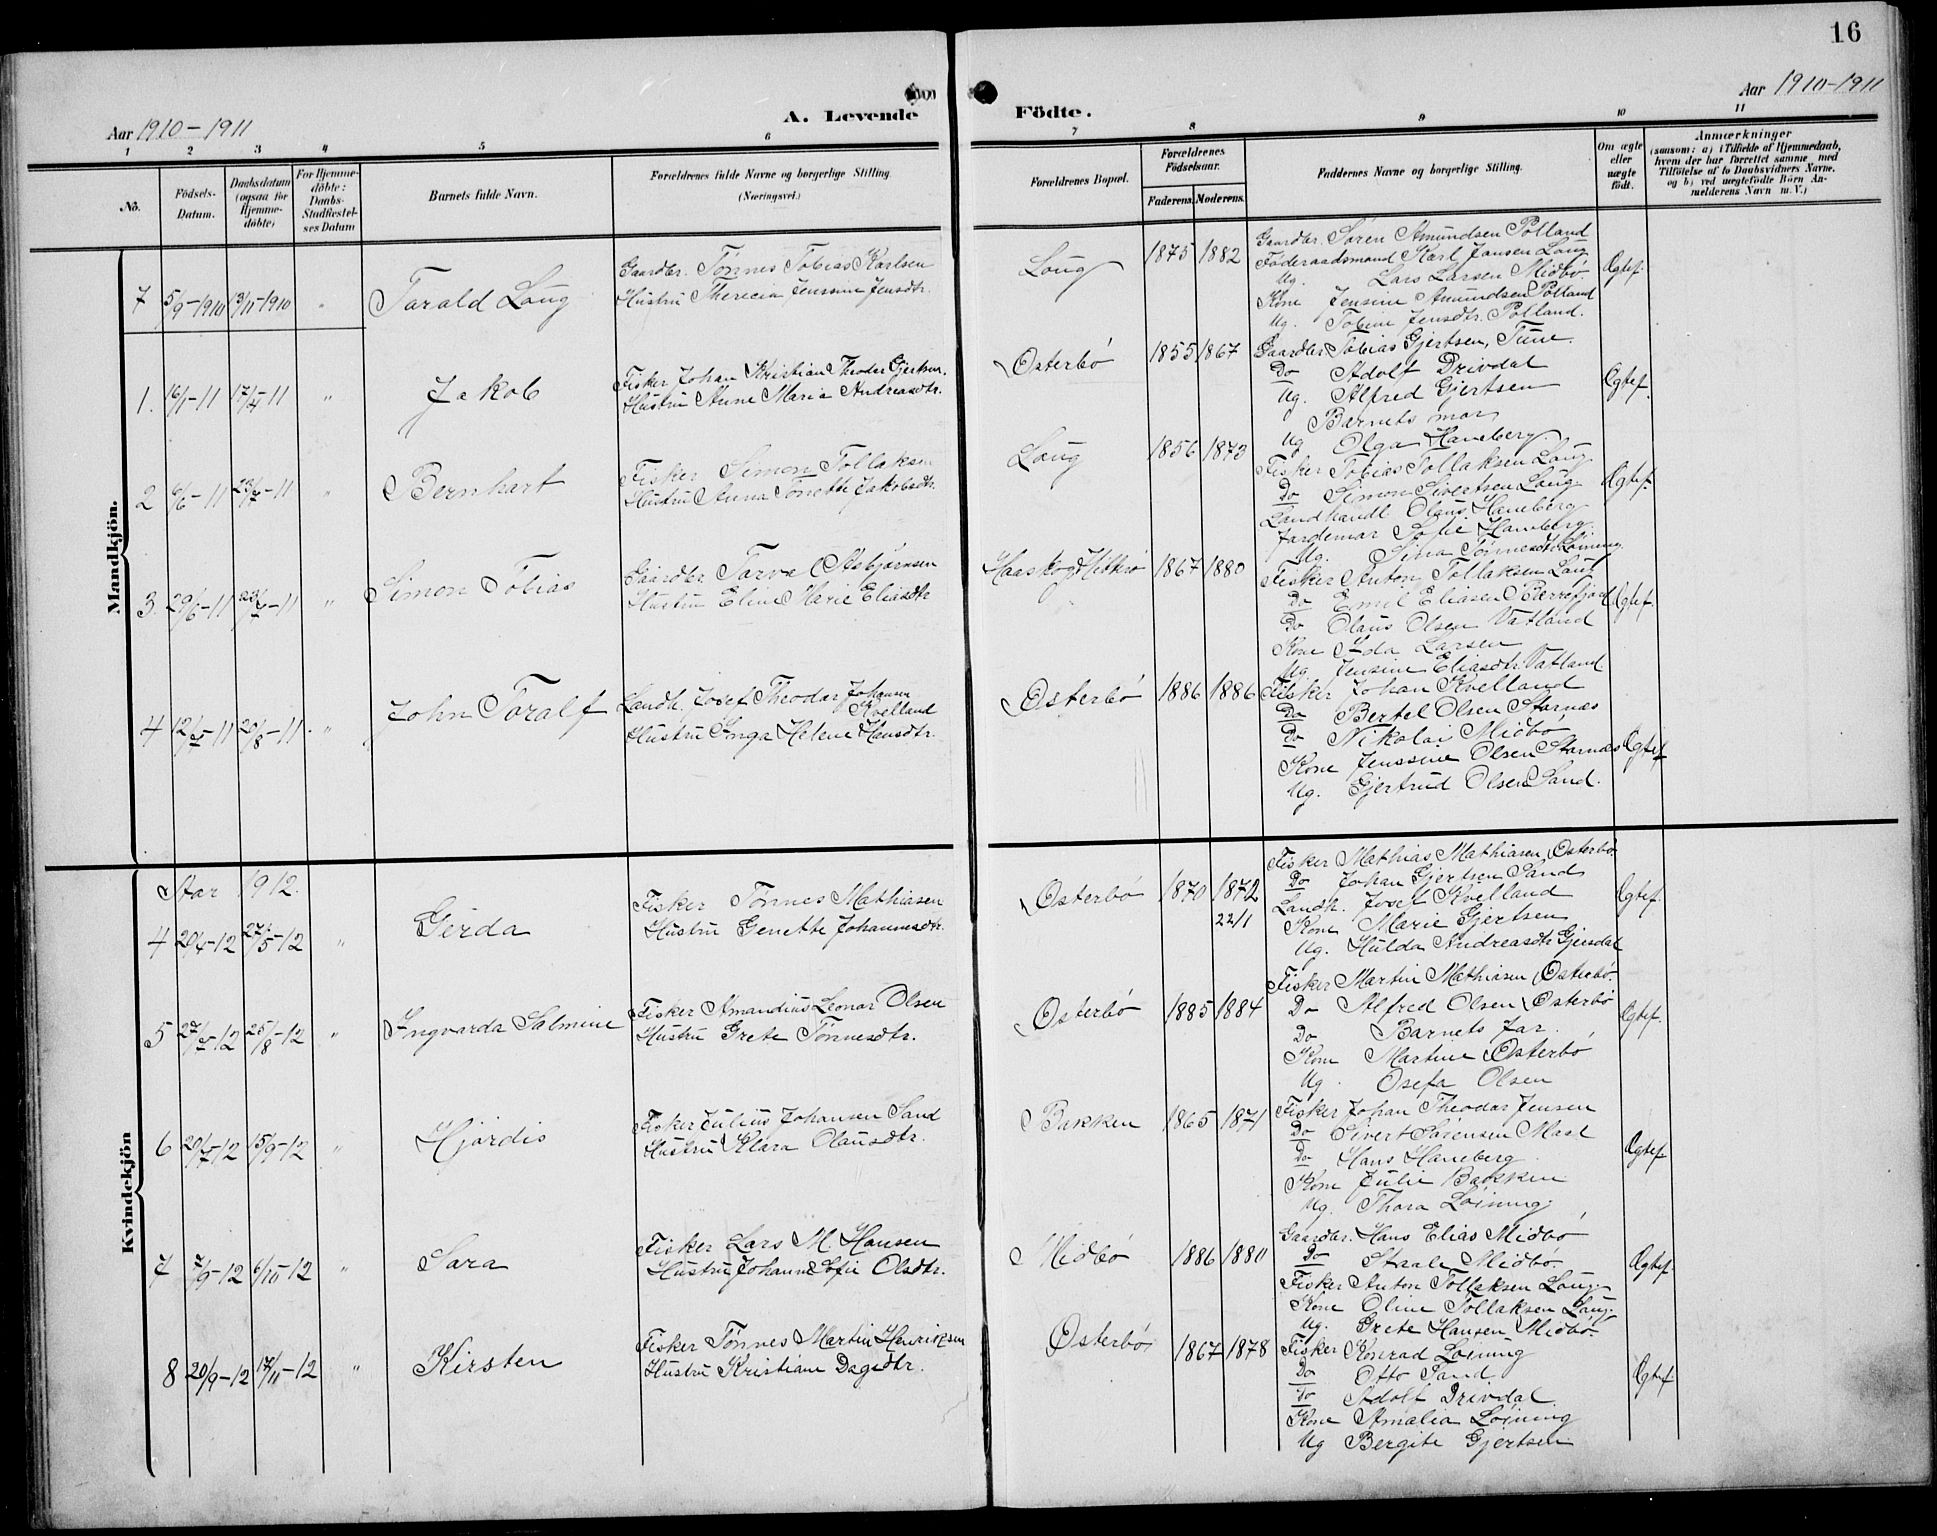 16
Aar 1910-1911
A. Levende Födte.
Aar 1910-1911
1 2 3 4 5 6 7 8 9 10 11
No.
Födsels-Datum.
Daabsdatum (ogsaa for Hjemme-döbte)
For Hjemme-döbte: Daabs-Stadfæstel-ses Datum
Barnets fulde Navn.
Forældrenes fulde Navne og borgerlige Stilling. (Næringsvei.)
Forældrenes Bopæl.
Forældrenes Födselsaar.
Faderens. Moderens.
Faddernes Navne og borgerlige Stilling.
Om ægte eller uægte födt.
Anmærkninger
(saasom: a) i Tilfælde af Hjemmedaab,
hvem der har forrettet samme med
Tilföielse af to Daabsvidners Navne,
og b) ved uægtefödte Börn An-
melderens Navn m. V.)
Mandkjön.
7 5/9-1910 13/11-1910 " Tarald Loug
Gaardbr. Tønnes Tobias Karlsen
Hustru Therecia Jenssine Jensdtr.
Loug 1875 1882
Gaardbr. Søren Amundsen Pølland
Føderaadsmand Karl Jansen Loug
Ug. Lars Larsen Midbö.
Kone Jensine Amundsen Pölland
Ug. Tobine Jensdtr. Pölland.
Ægtef.
1. 16/1-11 17/4-11 " Jakob
Fisker Johan Kristian Theodor Gjertsen.
Hustru Anne Maria Andreasdtr.
Osterbö 1855 1867
Gaardbr. Tobias Gjertsen, Tune.
Do Adolf Drivdal
Ug. Alfred Gjertsen
Barnets mor
Ug Olga Haneberg.
Ægtef.
2 6/6-11 23/7-11 " Bernhart
Fisker Simon Tollaksen
Hustru Anna Tonette Jakobsdtr.
Loug 1856 1873
Fisker Tobias Tollaksen Loug
Do Simon Sivertsen Loug
Landhandl. Olaus Haneberg
Jordemor Sofie Haneberg.
Ug. Sina Tønnesdtr. Löining.
Ægtef.
3 29/6-11 23/7-11 " Simon Tobias
Gaardbr Tarva Asbjørnsen
Hustru Eline Marie Eliasdtr
Haaskog Hitterö 1867 1880
Fisker Anton Tollaksen Loug
Do Emil Eliasen
Do Olaus Olsen Vatland
Kone Ida Larsen
Ug. Jensine Eliasdtr. Vatland
Ægtef.
4 12/7-11 20/8-11. " John Toralf
Landh. Josef Theodor Johansen Kvelland
Hustru Inga Helene Hansdtr.
Osterbö 1886 1886
Fisker Johan Kvelland
Do Bertel Olsen Starnæs
Do Nikolai Midbö
Kone Jenssine Olsen Starnæs
Ug. Gjertrud Olsen Sand.
Ægtef
Kvindekjön
Aar 1912.
4 20/4-12 27/5-12 " Gerda
Fisker Tønnes Mathiasen
Hustru Genette Johannesdtr.
Osterbö 1870 1872
22/1
Fisker Mathias Mathiasen Osterbö
Do Johan Gjertsen Sand
Landh. Josef Kvelland
Kone Marie Gjertsen
Ug. Hulda Andreasdtr Gjersdal
Ægtef.
5 27/7-12 25/8-12 " Ingvarda Salmine
Fisker Amandius Leonar Olsen
Hustru Grete Tönnesdtr.
Osterbö 1885 1884
Fisker Martin Mathiasen Osterbö.
Do Alfred Olsen Osterbö
Do Barnets far.
Kone Martine Osterbö
Ug. Osefa Olsen
Ægtef.
6 20/7-12 15/9-12 " Hjørdis
Fisker Julius Johansen Sand
Hustru Klara Olausdtr.
Bakken 1865 1871
Fisker Johan Theodor Jensen
Do Sivert Sørensen Maal
Do Hans Haneberg
Kone Julie Bakken
Ug. Thora Löining.
Ægtef
7 7/9-12 6/10-12 " Sara
Fisker Lars M. Hansen
Hustru Johanne Sofie Olsdtr.
Midbö 1886 1880
Gaardbr. Hans Elias Midbö
Do Staale Midbö.
Fisker Anton Tollaksen Loug
Kone Oline Tollaksen Loug.
Ug. Grete Hansen Midbö.
Ægtef.
8 20/9-12 17/11-12 " Kirsten
Fisker Tønnes Martin Henriksen
Hustru Kristiane Dagsdtr.
Osterbö 1867 1878
Fisker Konrad Löining
Do Otto Sand
Do Adolf Drivdal.
Kone Amalia Löining
Ug Bergite Gjertsen.
Ægtef.